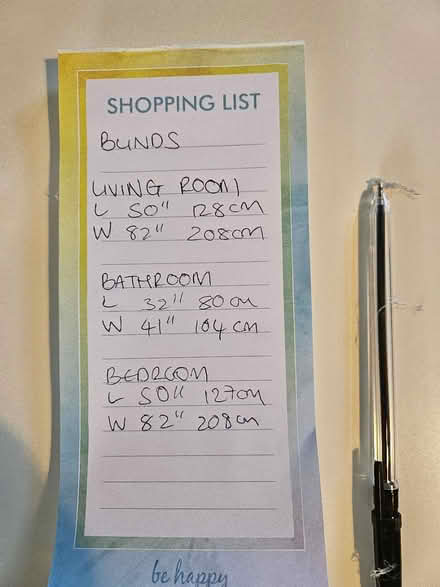 SHOPPING LIST
BLINDS
LIVING ROOM
L 50" 128cm
W 82" 208cm
BATHROOM
L 32" 80cm
W 41" 104cm
BEDROOM
L 50" 127cm
W 82" 208cm
be happy